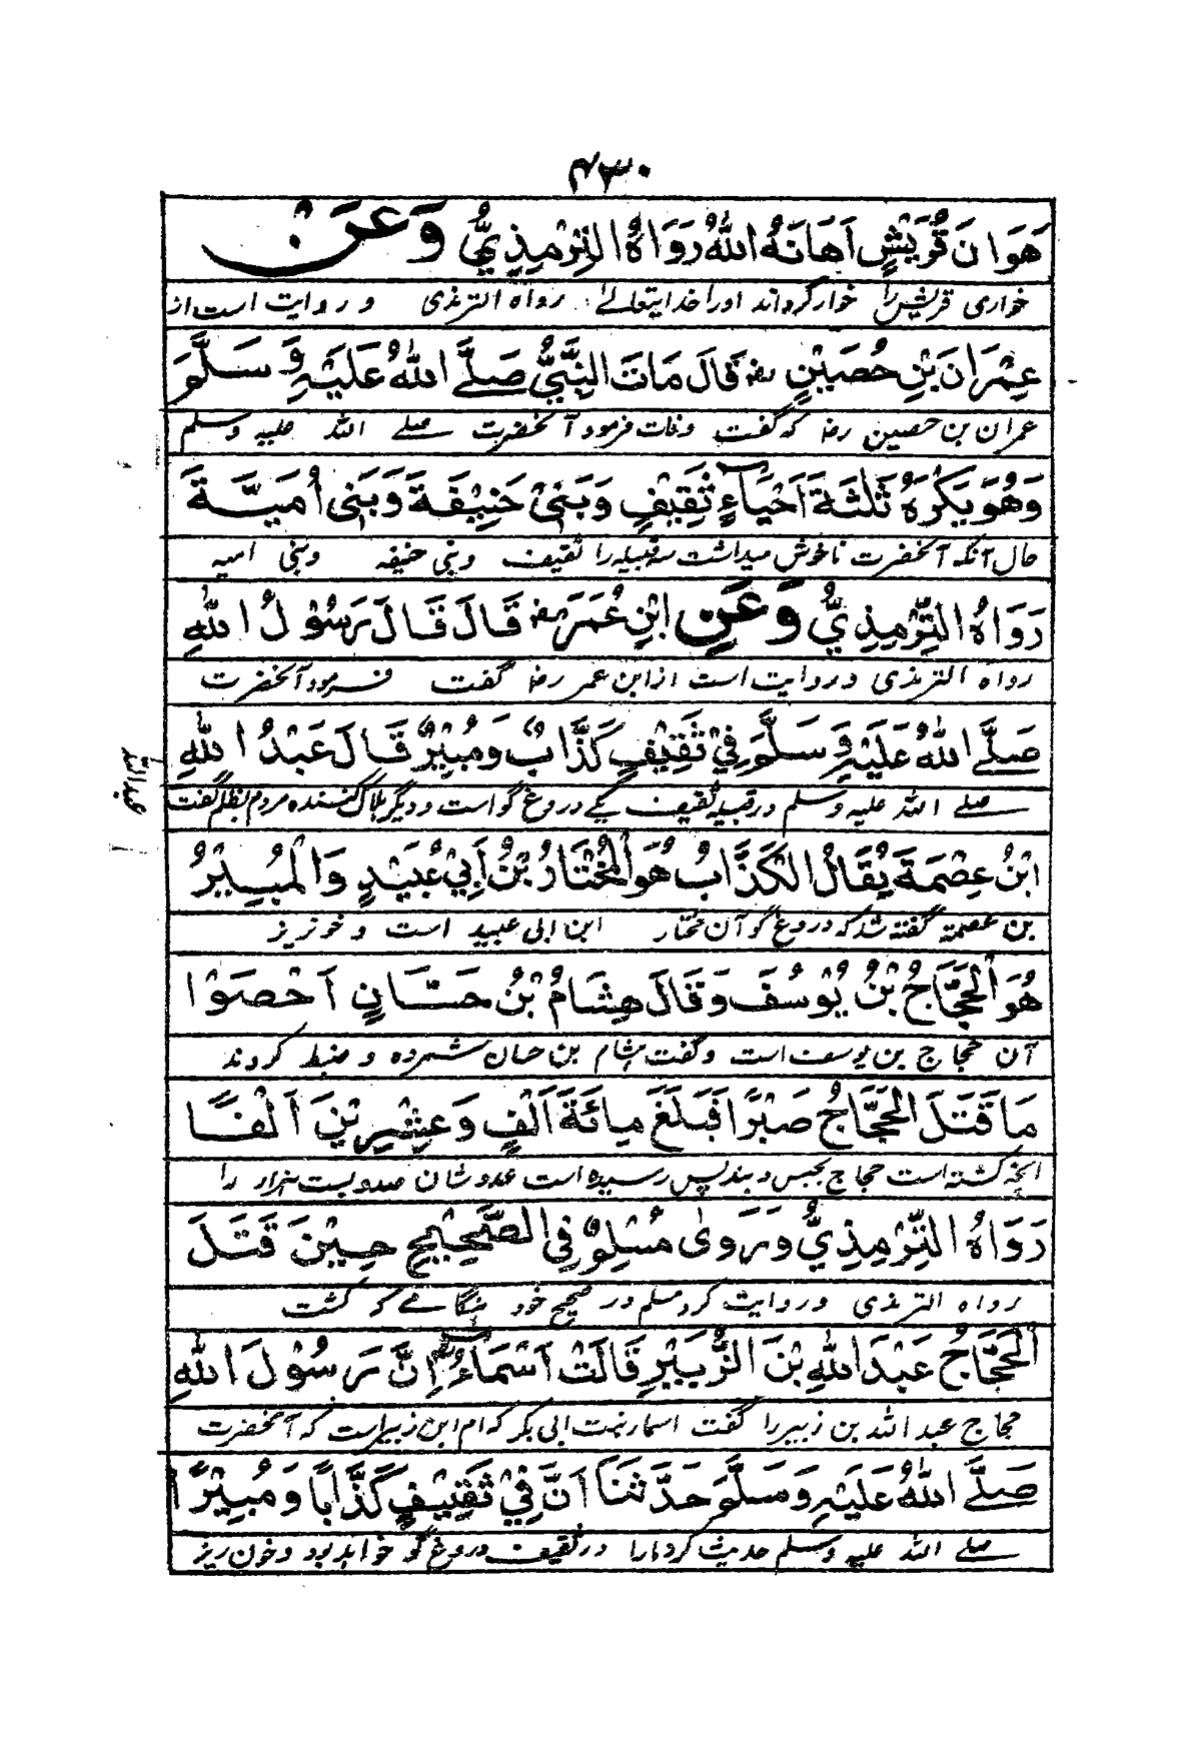 ۴۳۰
هَوَانَ قُرَيْشٍ اَهَانَهُ اللّٰهُ رَوَاهُ التِّرْمِذِيُّ وَعَنْ
خواری قریش را خوار گرداند اورا خدایتعالے رواه الترمذی و روایت است از
عِمْرَانَ بْنِ حُصَيْنٍ رض قَالَ مَاتَ النَّبِيُّ صَلَّے اللّٰهُ عَلَيْهِ وَ سَلَّمَ
عمران بن حصین رض که گفت وفات فرمود آنحضرت صلے اللہ علیه وسلم
وَهُوَ يَكْرَهُ ثَلٰثَةَ اَحْيَاءٍ ثَقِيْفٍ وَبَنِىْ حَنِيْفَةَ وَبَنِى اُمَيَّةَ
حال آنکه آنحضرت ناخوش میداشت سه قبیله را ثقیف وبنی حنیفه وبنی امیه
رَوَاهُ التِّرْمِذِيُّ وَعَنِ ابْنِ عُمَرَ رض قَالَ قَالَ رَسُوْلُ اللّٰهِ
رواه الترمذی و روایت است از ابن عمر رض گفت فرمود آنحضرت
صَلَّے اللّٰهُ عَلَيْهِ وَ سَلَّمَ فِيْ ثَقِيْفٍ كَذَّابٌ وَمُبِيْرٌ قَالَ عَبْدُ اللّٰهِ
صلے اللہ علیه وسلم در قبیله ثقیف یکے دروغ گو است و دیگر ہلاک کننده مردم بظلم گفت
عبد اللّٰه
ابْنُ عِصْمَةَ يُقَالُ الْكَذَّابُ هُوَ الْمُخْتَارُ بْنُ اَبِيْ عُبَيْدٍ وَالْمُبِيْرُ
بن عصمة گفته شد که دروغ گو آن مختار ابن ابی عبید است و خونریز
هُوَ الْحَجَّاجُ بْنُ يُوْسُفَ وَقَالَ هِشَامُ بْنُ حَسَّانٍ اَحْصَوْا
آن حجاج بن یوسف است وگفت ہشام بن حسان شمرده و ضبط کردند
مَا قَتَلَ الْحَجَّاجُ صَبْرًا فَبَلَغَ مِائَةَ اَلْفٍ وَعِشْرِيْنَ اَلْفًا
انچه کشته است حجاج بحبس و بند پس رسیده است عدد شان صد و بست ہزار را
رَوَاهُ التِّرْمِذِيُّ وَرَوٰى مُسْلِمٌ فِى الصَّحِيْحِ حِيْنَ قَتَلَ
رواه الترمذی و روایت کرد مسلم در صحیح خود ہنگامے که کشت
الْحَجَّاجُ عَبْدَ اللّٰهِ بْنَ الزُّبَيْرِ قَالَتْ اَسْمَاءُ اِنَّ رَسُوْلَ اللّٰهِ
حجاج عبد اللہ بن زبیر را گفت اسماء بنت ابی بکر که ام ابن زبیر است که آنحضرت
صَلَّے اللّٰهُ عَلَيْهِ وَسَلَّمَ حَدَّثَنَا اَنَّ فِيْ ثَقِيْفٍ كَذَّابًا وَمُبِيْرًا
صلے اللہ علیه وسلم حدیث کرد مارا در ثقیف دروغ گو خواہد بود و خون ریز